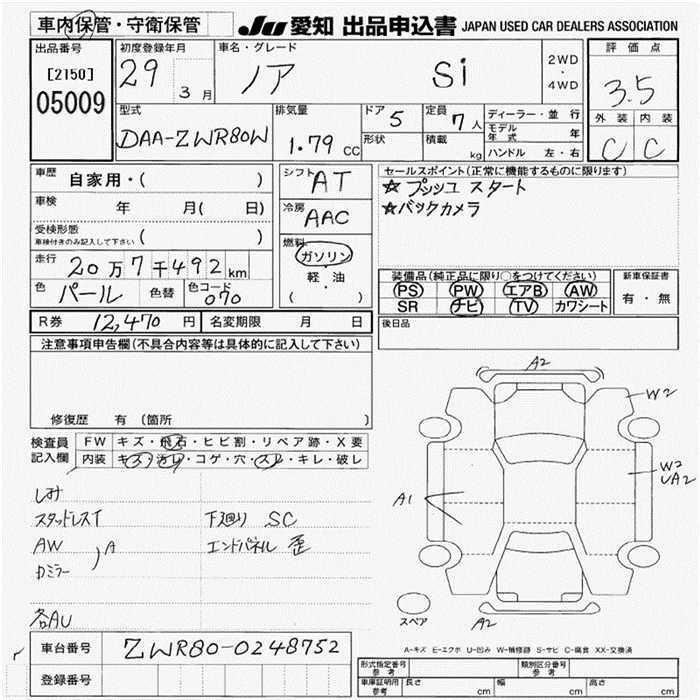 車内保管・守衛保管 JU 愛知 出品申込書 JAPAN USED CAR DEALERS ASSOCIATION
出品番号 初度登録年月 車名・グレード 2WD ・ 4WD 評価点
[2150] 29 3月 ノア Si 3.5
05009
型式 排気量 ドア 5 定員 7人 ディーラー・並行 外装 内装
DAA-ZWR80W 1.79 CC 形状 積載 kg モデル年式 年 C C
ハンドル 左・右
車歴 自家用・( ) シフト AT セールスポイント(正常に機能するものに限ります)
車検 年 月( 日) 冷房 AAC ☆プッシュスタート
受検形態 ( ) ☆バックカメラ
車検付きのみ記入して下さい
走行 20万7千492km 燃料 ガソリン・軽・油 ( )
色 パール 色替 色コード 070
装備品(純正品に限り○をつけてください) 新車保証書
PS PW エアB AW 有・無
SR ナビ TV カワシート
R券 12,470円 名変期限 月 日 後日品
注意事項申告欄(不具合内容等は具体的に記入して下さい)
修復歴 有 (箇所 )
検査員記入欄 FW キズ・飛石・ヒビ割・リペア跡・X要
内装 キズ・汚レ・コゲ・穴・スレ・キレ・破レ
シミ
スタッドレスT 下廻り SC
AW エンドパネル 歪
カミラー )A
各AU
A2
W2
W2
UA2
A1
スペア
A2
A-キズ E-エクボ U-凹み W-補修跡 S-サビ C-腐食 XX-交換済
車台番号 ZWR80-0248752
登録番号
形式指定番号 参考 類別区分番号 参考
車庫証明用 参考 長さ cm 幅 cm 高さ cm